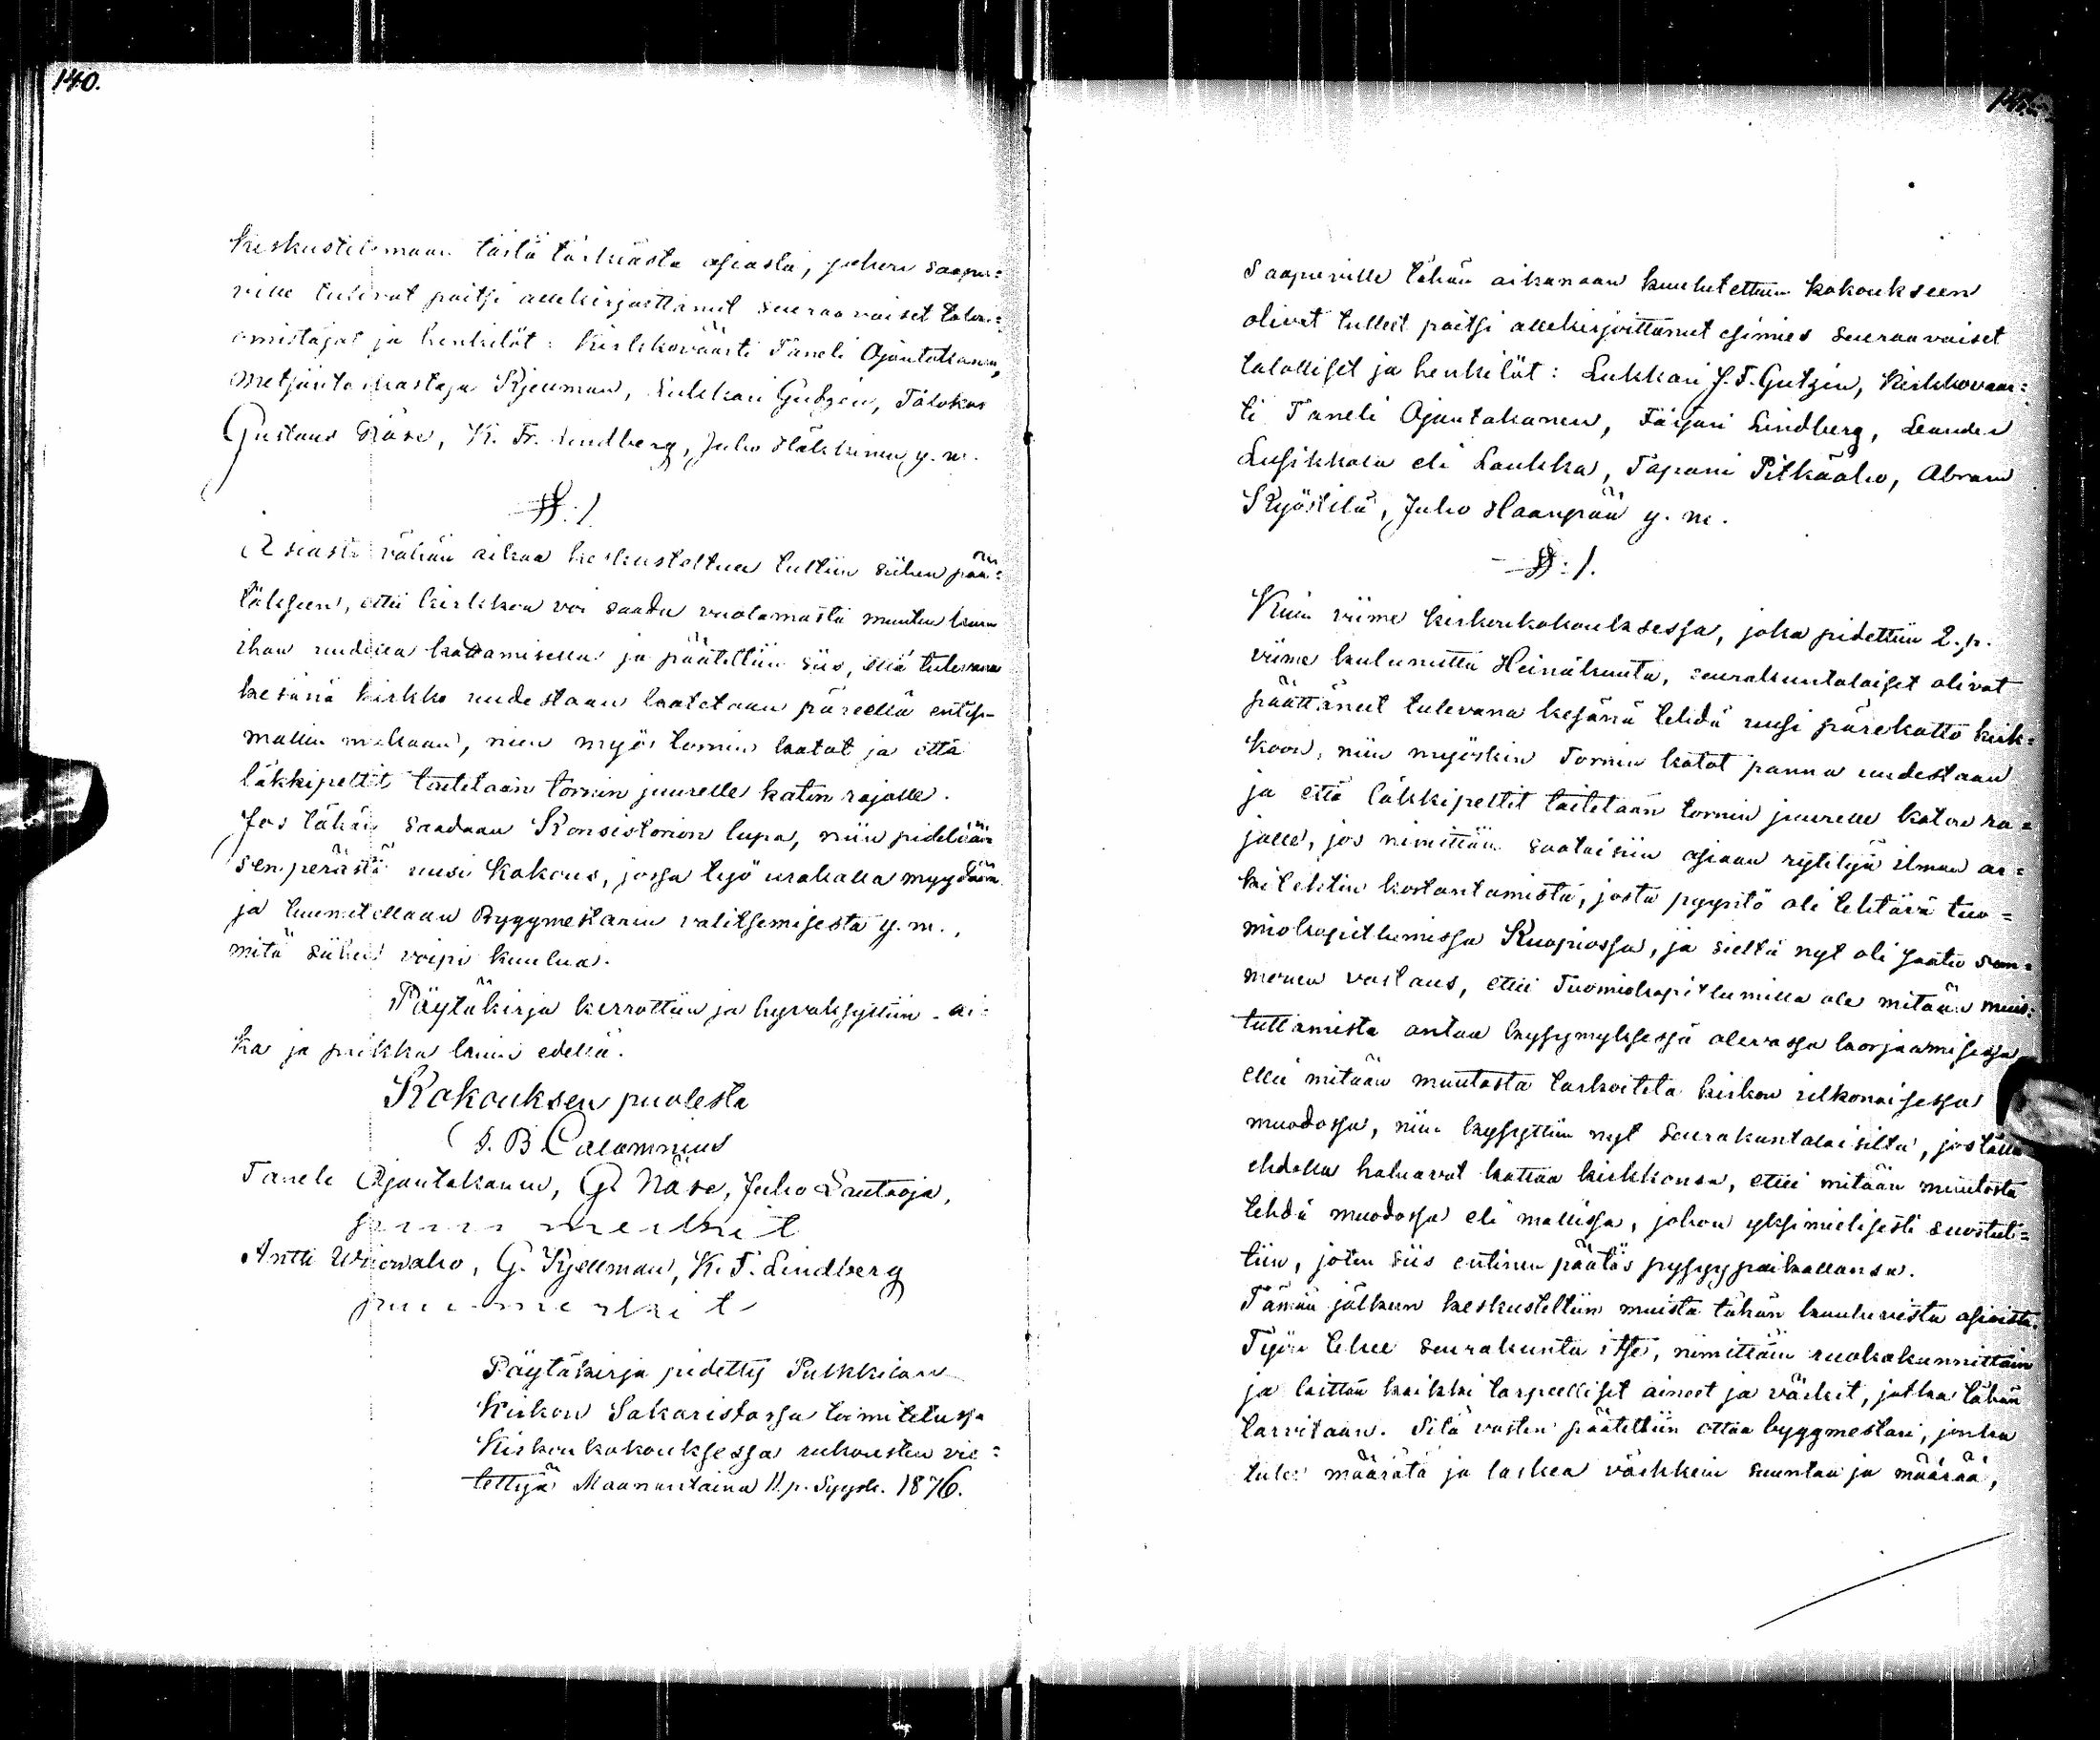 140.
keskustelemaan tästä tärkiästä asiasta, johon saapu=
ville tulivat paitsi allekirjoittanut seuraavaiset talon=
omistajat ja henkilöt: Kirkkoväärti Taneli Ajantakanen,
Metsänhoitaja Kjellman, Lukkari Gutzén, Talokas
Gustaus Näse, K. Fr. Lindberg, Juho Häkkinen y. m.
§. 1
Asiasta vähän aikaa keskusteltua tultiin siihen pää=
tökseen, ettei kirkkoa voi saada vuotamasta muuten kuin
ihan uudella kattamisella ja päätettiin siis, että tulevana
kesänä kirkko uudestaan katetaan päreellä entis-
mallin mukaan, niin myös tornin katot ja että
läkkipeltit taitetaan tornin juurelle katon rajalle.
Jos tähän saadaan Konsistorion lupa, niin pidetään
sen perästä uusi kokous, jossa työ urakalla myydään
ja tuumitellaan Byggmestarin valitsemisesta y. m.,
mitä siihen voipi kuulua.
Pöytäkirja kerrottiin ja hyväksyttiin ai=
ka ja paikka kuin edellä.
Kokouksen puolesta
S. B Calamnius
Taneli Ajantakanen, G. Näse, Juho Lautaoja,
puumerkit
Antti Wiiowaho, G. Kjellman, K. F. Lindberg
puumerkit
Pöytäkirja pidetty Pulkkilan
Kirkon Sakaristossa toimitetussa
Kirkonkokouksessa rukousten vie=
tettyä Maanantaina 11. p. Syysk. 1876.
Saapuville tähän aikanaan kuulutettuun kokoukseen
olivat tulleet paitsi allekirjoittanut esimies seuraavaiset
talolliset ja henkilöt: Lukkari J. F. Gutzén, Kirkkovaar=
ti Taneli Ajantakanen, Färjäri Lindberg, Leander
Lusikkala eli Laukka, Tapani Pitkäaho, Abram
Kyöstilä, Juho Haanpää y. m.
§: 1.
Kuin viime kirkonkokouksessa, joka pidettiin 2. p.
viime kulunutta Heinäkuuta, seurakuntalaiset olivat
päättäneet tulevana kesänä tehdä uusi pärekatto kirk=
koon, niin myöskin Tornin katot panna uudestaan
ja että läkkipeltit taitetaan tornin juurelle katon ra=
jalle, jos nimittäin saataisiin asiaan ryhtyä ilman ar=
kitehtin kostantamista, josta pyyntö oli tehtävä tuo=
miokapitlumissa Kuopiossa, ja sieltä nyt oli saatu sem=
monen vastaus, ettei Tuomiokapitlumilla ole mitään muis=
tuttamista antaa kysymyksessä olevassa korjaamisessa
ellei mitään muutosta tarkoiteta kirkon ulkonaisessa
muodossa, niin kysyttiin nyt seurakuntalaisilta, jos tällä
ehdolla haluavat kattaa kirkkonsa, ettei mitään muutosta
tehdä muodossa eli mallissa, johon yksimielisesti suostut=
tiin, joten siis entinen päätös pysyy paikallansa.
Tämän jälkeen keskusteltiin muista tähän kuuluvista asioista.
Työn tekee seurakunta itse, nimittäin ruokakunnittain
ja laittaa kaikki tarpeelliset aineet ja värkit, jotka tähän
tarvitaan. Sitä vasten päätettiin ottaa byggmestari, jonka
tulee määrätä ja laskea värkkein suuntaa ja määrää,